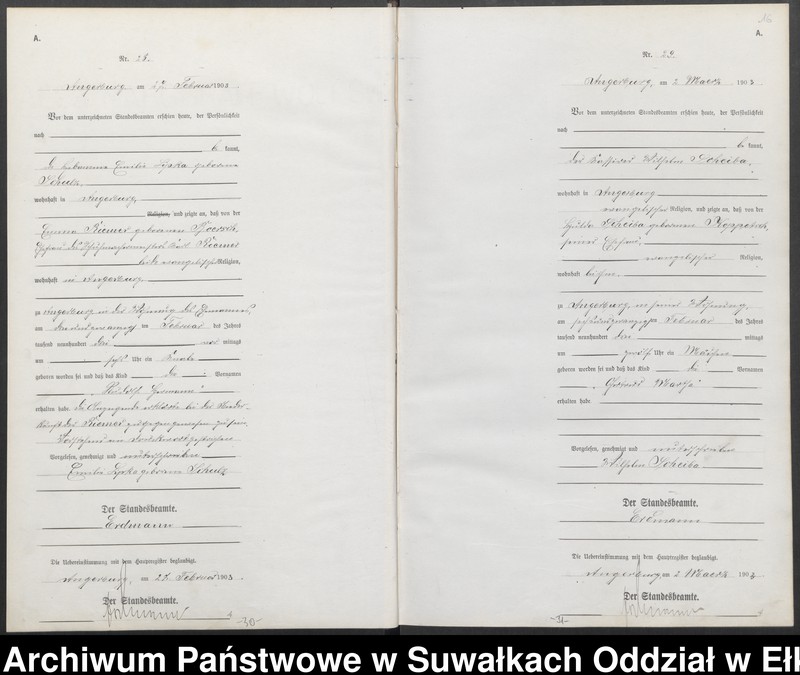 A.
Nr. 28.
Angerburg am 27. Februar 1903.
Vor dem unterzeichneten Standesbeamten erschien heute, der Persönlichkeit
nach
be kannt,
die Hebamme Emilie Lyska geborene
Schulz,
wohnhaft in Angerburg,
Religion, und zeigte an, daß von der
Emma Riemer geborenen
Ehefrau des Karl Riemer
beide evangelischer Religion,
wohnhaft in Angerburg
zu Angerburg in der Wohnung des Ehemannes,
am ten Februar des Jahres
tausend neunhundert drei vor mittags
um Uhr ein Knabe
geboren worden sei und daß das Kind die Vornamen
Rudolf Hermann
erhalten habe. Die Anzeigende erklärte, bei der Nieder-
kunft der Riemer zugegen gewesen zu sein.
Vorgelesen, genehmigt und unterschrieben
Emilie Lyska geborene Schulz
Der Standesbeamte.
Erdmann
Die Uebereinstimmung mit dem Hauptregister beglaubigt.
Angerburg, am 27. Februar 1903.
Der Standesbeamte.
Erdmann
-30-
16
A.
Nr. 29.
Angerburg, am 2 Maerz 1903
Vor dem unterzeichneten Standesbeamten erschien heute, der Persönlichkeit
nach
be kannt,
der Wilhelm Scheiba,
wohnhaft in Angerburg
evangelischer Religion, und zeigte an, daß von der
Scheiba geborenen
seiner Ehefrau,
evangelischer Religion,
wohnhaft bei ihm,
zu Angerburg, in seiner Wohnung,
am sechsundzwanzigsten Februar des Jahres
tausend neunhundert drei mittags
um zwölf Uhr ein Mädchen
geboren worden sei und daß das Kind die Vornamen
Martha
erhalten habe
Vorgelesen, genehmigt und unterschrieben
Wilhelm Scheiba
Der Standesbeamte.
Erdmann
Die Uebereinstimmung mit dem Hauptregister beglaubigt.
Angerburg, am 2 Maerz 1903
Der Standesbeamte.
Erdmann
-31-
Archiwum Państwowe w Suwałkach Oddział w Ełk